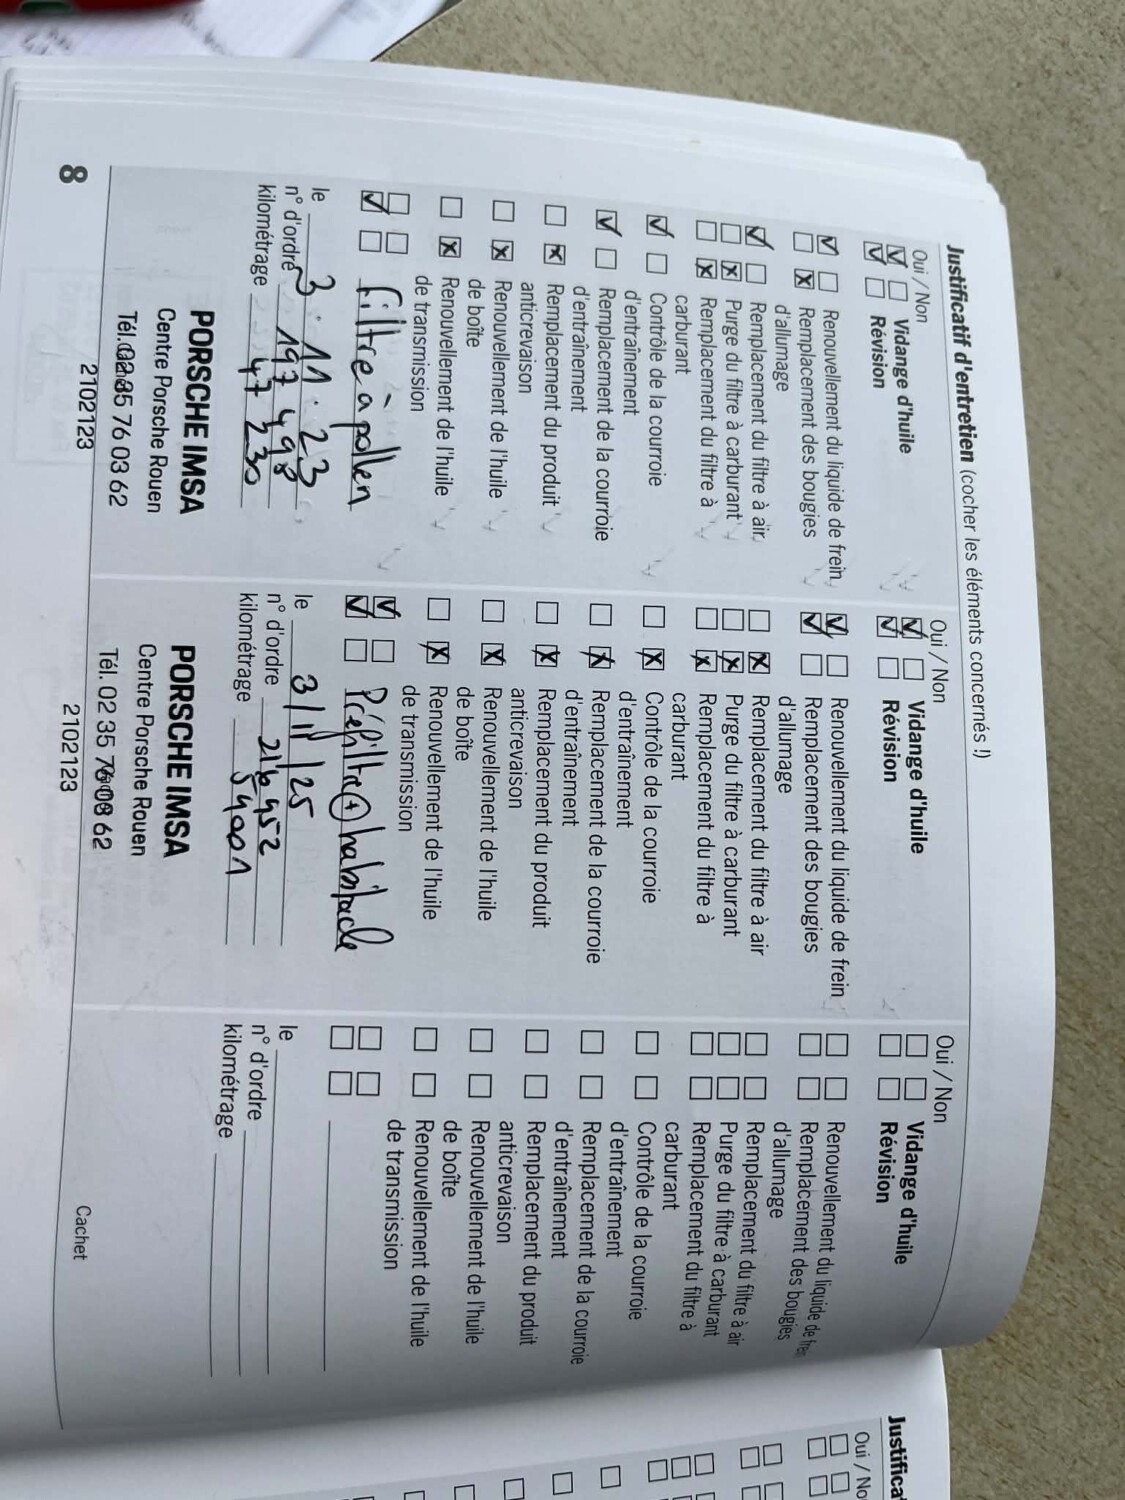 Justificatif d'entretien (cocher les éléments concernés !)
Oui / Non
Vidange d'huile
Révision
Renouvellement du liquide de frein
Remplacement des bougies
d'allumage
Remplacement du filtre à air
Purge du filtre à carburant
Remplacement du filtre à
carburant
Contrôle de la courroie
d'entraînement
Remplacement de la courroie
d'entraînement
Remplacement du produit
anticrevaison
Renouvellement de l'huile
de boîte
Renouvellement de l'huile
de transmission
filtre a pollen
le 3. 11. 23
n° d'ordre 197498
kilométrage 47 230
PORSCHE IMSA
Centre Porsche Rouen
Tél. 02 35 76 03 62
2102123
8
Oui / Non
Vidange d'huile
Révision
Renouvellement du liquide de frein
Remplacement des bougies
d'allumage
Remplacement du filtre à air
Purge du filtre à carburant
Remplacement du filtre à
carburant
Contrôle de la courroie
d'entraînement
Remplacement de la courroie
d'entraînement
Remplacement du produit
anticrevaison
Renouvellement de l'huile
de boîte
Renouvellement de l'huile
de transmission
Préfiltre + habitacle
le 3/11/25
n° d'ordre 216952
kilométrage 54001
PORSCHE IMSA
Centre Porsche Rouen
Tél. 02 35 76 03 62
2102123
Oui / Non
Vidange d'huile
Révision
Renouvellement du liquide de frein
Remplacement des bougies
d'allumage
Remplacement du filtre à air
Purge du filtre à carburant
Remplacement du filtre à
carburant
Contrôle de la courroie
d'entraînement
Remplacement de la courroie
d'entraînement
Remplacement du produit
anticrevaison
Renouvellement de l'huile
de boîte
Renouvellement de l'huile
de transmission
le
n° d'ordre
kilométrage
Cachet
Justifica
Oui / No